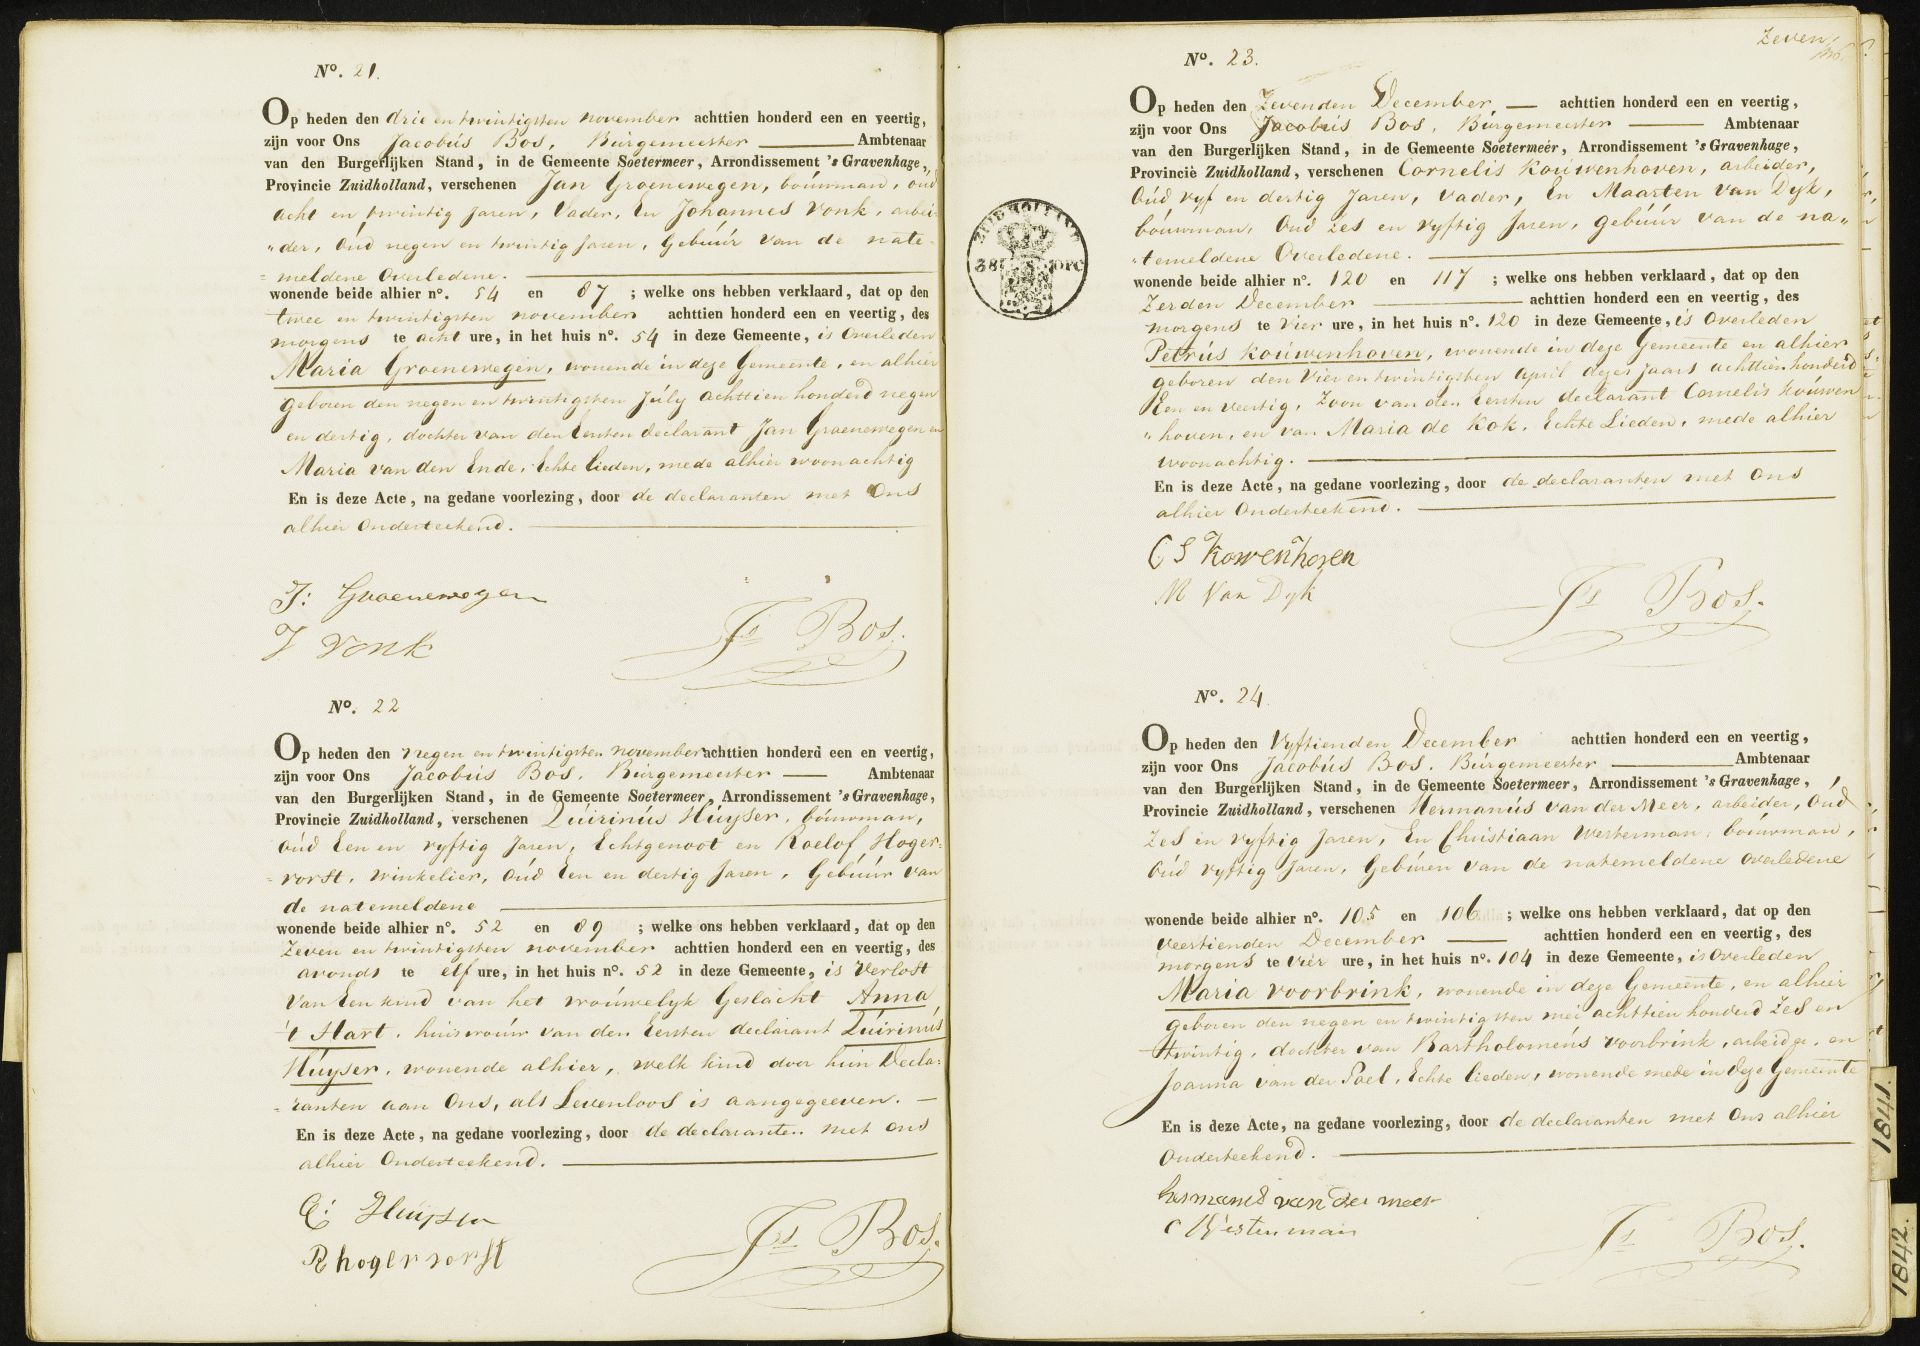 No. 21.
Op heden den drie en twintigsten november achttien honderd een en veertig,
zijn voor Ons Jacobús Bos, Búrgemeester Ambtenaar
van den Burgerlijken Stand, in de Gemeente Soetermeer, Arrondissement 's Gravenhage,
Provincie Zuidholland, verschenen Jan Groenewegen, boúwman, oúd
acht en twintig Jaren, Vader, En Johannes Vonk, arbei-
„der, Oúd negen en twintig Jaren, Gebúúr van de nate-
=meldene Overledene.
wonende beide alhier no. 54 en 87 ; welke ons hebben verklaard, dat op den
twee en twintigsten november achttien honderd een en veertig, des
morgens te acht ure, in het huis no. 54 in deze Gemeente, is Overleden
Maria Groenewegen, wonende in deze Gemeente, en alhier
geboren den negen en twintigsten Júly achttien honderd negen
en dertig, dochter van den Eersten declarant Jan Groenewegen en
Maria van den Ende, Echte Lieden, mede alhier woonachtig
En is deze Acte, na gedane voorlezing, door de declaranten met Ons
alhier Onderteekend.
J: Groenewegen
J Vonk
Js Bos.
No. 22
Op heden den Negen en twintigsten november achttien honderd een en veertig,
zijn voor Ons Jacobús Bos, Búrgemeester Ambtenaar
van den Burgerlijken Stand, in de Gemeente Soetermeer, Arrondissement 's Gravenhage,
Provincie Zuidholland, verschenen Qúirinús Húyser, boúwman,
oúd Een en vyftig Jaren, Echtgenoot en Roelof Hoger-
=vorst, winkelier, Oúd Een en dertig Jaren, Gebúúr van
de natemeldene
wonende beide alhier no. 52 en 89 ; welke ons hebben verklaard, dat op den
Zeven en twintigsten november achttien honderd een en veertig, des
avonds te elf ure, in het huis no. 52 in deze Gemeente, is Verlost
van Een kind van het vroúwelyk Geslacht Anna
't Hart, huisvroúw van den Eersten declarant Qúirinús
Húyser, wonende alhier, welk kind door hún Decla-
=ranten aan Ons, als Levenloos is aangegeeven.
En is deze Acte, na gedane voorlezing, door de declaranten met ons
alhier Onderteekend.
Q: Húyser
R hogervorst
Js Bos.
Zeven
No. 23.
Op heden den Zevenden December achttien honderd een en veertig,
zijn voor Ons Jacobús Bos, Búrgemeester Ambtenaar
van den Burgerlijken Stand, in de Gemeente Soetermeer, Arrondissement 's Gravenhage,
Provincie Zuidholland, verschenen Cornelis Koúwenhoven, arbeider,
Oúd vyf en dertig Jaren, Vader, En Maarten van Dyk,
boúwman, Oúd zes en vyftig Jaren, gebúúr van de na„
„temeldene Overledene.
wonende beide alhier no. 120 en 117 ; welke ons hebben verklaard, dat op den
Zesden December achttien honderd een en veertig, des
morgens te vier ure, in het huis no. 120 in deze Gemeente, is Overleden
Petrús Koúwenhoven, wonende in deze Gemeente en alhier
geboren den Vier en twintigsten April dezes jaars achttien honderd
Een en veertig, Zoon van den Eersten declarant Cornelis Koúwen
„hoven, en van Maria de Kok, Echte Lieden, mede alhier
woonachtig.
En is deze Acte, na gedane voorlezing, door de declaranten met Ons
alhier Onderteekend.
C S Kowenhoven
M Van Dyk
Js Bos.
ZUID HOLLAND
38
OPC
No. 24.
Op heden den Vyftienden December achttien honderd een en veertig,
zijn voor Ons Jacobús Bos, Búrgemeester Ambtenaar
van den Burgerlijken Stand, in de Gemeente Soetermeer, Arrondissement 's Gravenhage,
Provincie Zuidholland, verschenen Hermanús van der Meer, arbeider, Oúd
Zes en vyftig Jaren, En Christiaan Westerman, boúwman,
Oúd vyftig Jaren, Gebúren van de natemeldene overledene
wonende beide alhier no. 105 en 106 ; welke ons hebben verklaard, dat op den
veertienden December achttien honderd een en veertig, des
morgens te vier ure, in het huis no. 104 in deze Gemeente, is Overleden
Maria Voorbrink, wonende in deze Gemeente, en alhier
geboren den negen en twintigsten mei achttien honderd Zes en
twintig, dochter van Bartholoméús Voorbrink, arbeidge, en
Joanna van der Poel, Echte Lieden, wonende mede in deze Gemeente
En is deze Acte, na gedane voorlezing, door de declaranten met Ons alhier
Onderteekend.
hermanus van der meer
C Westerman
Js Bos.
1841.
1842.